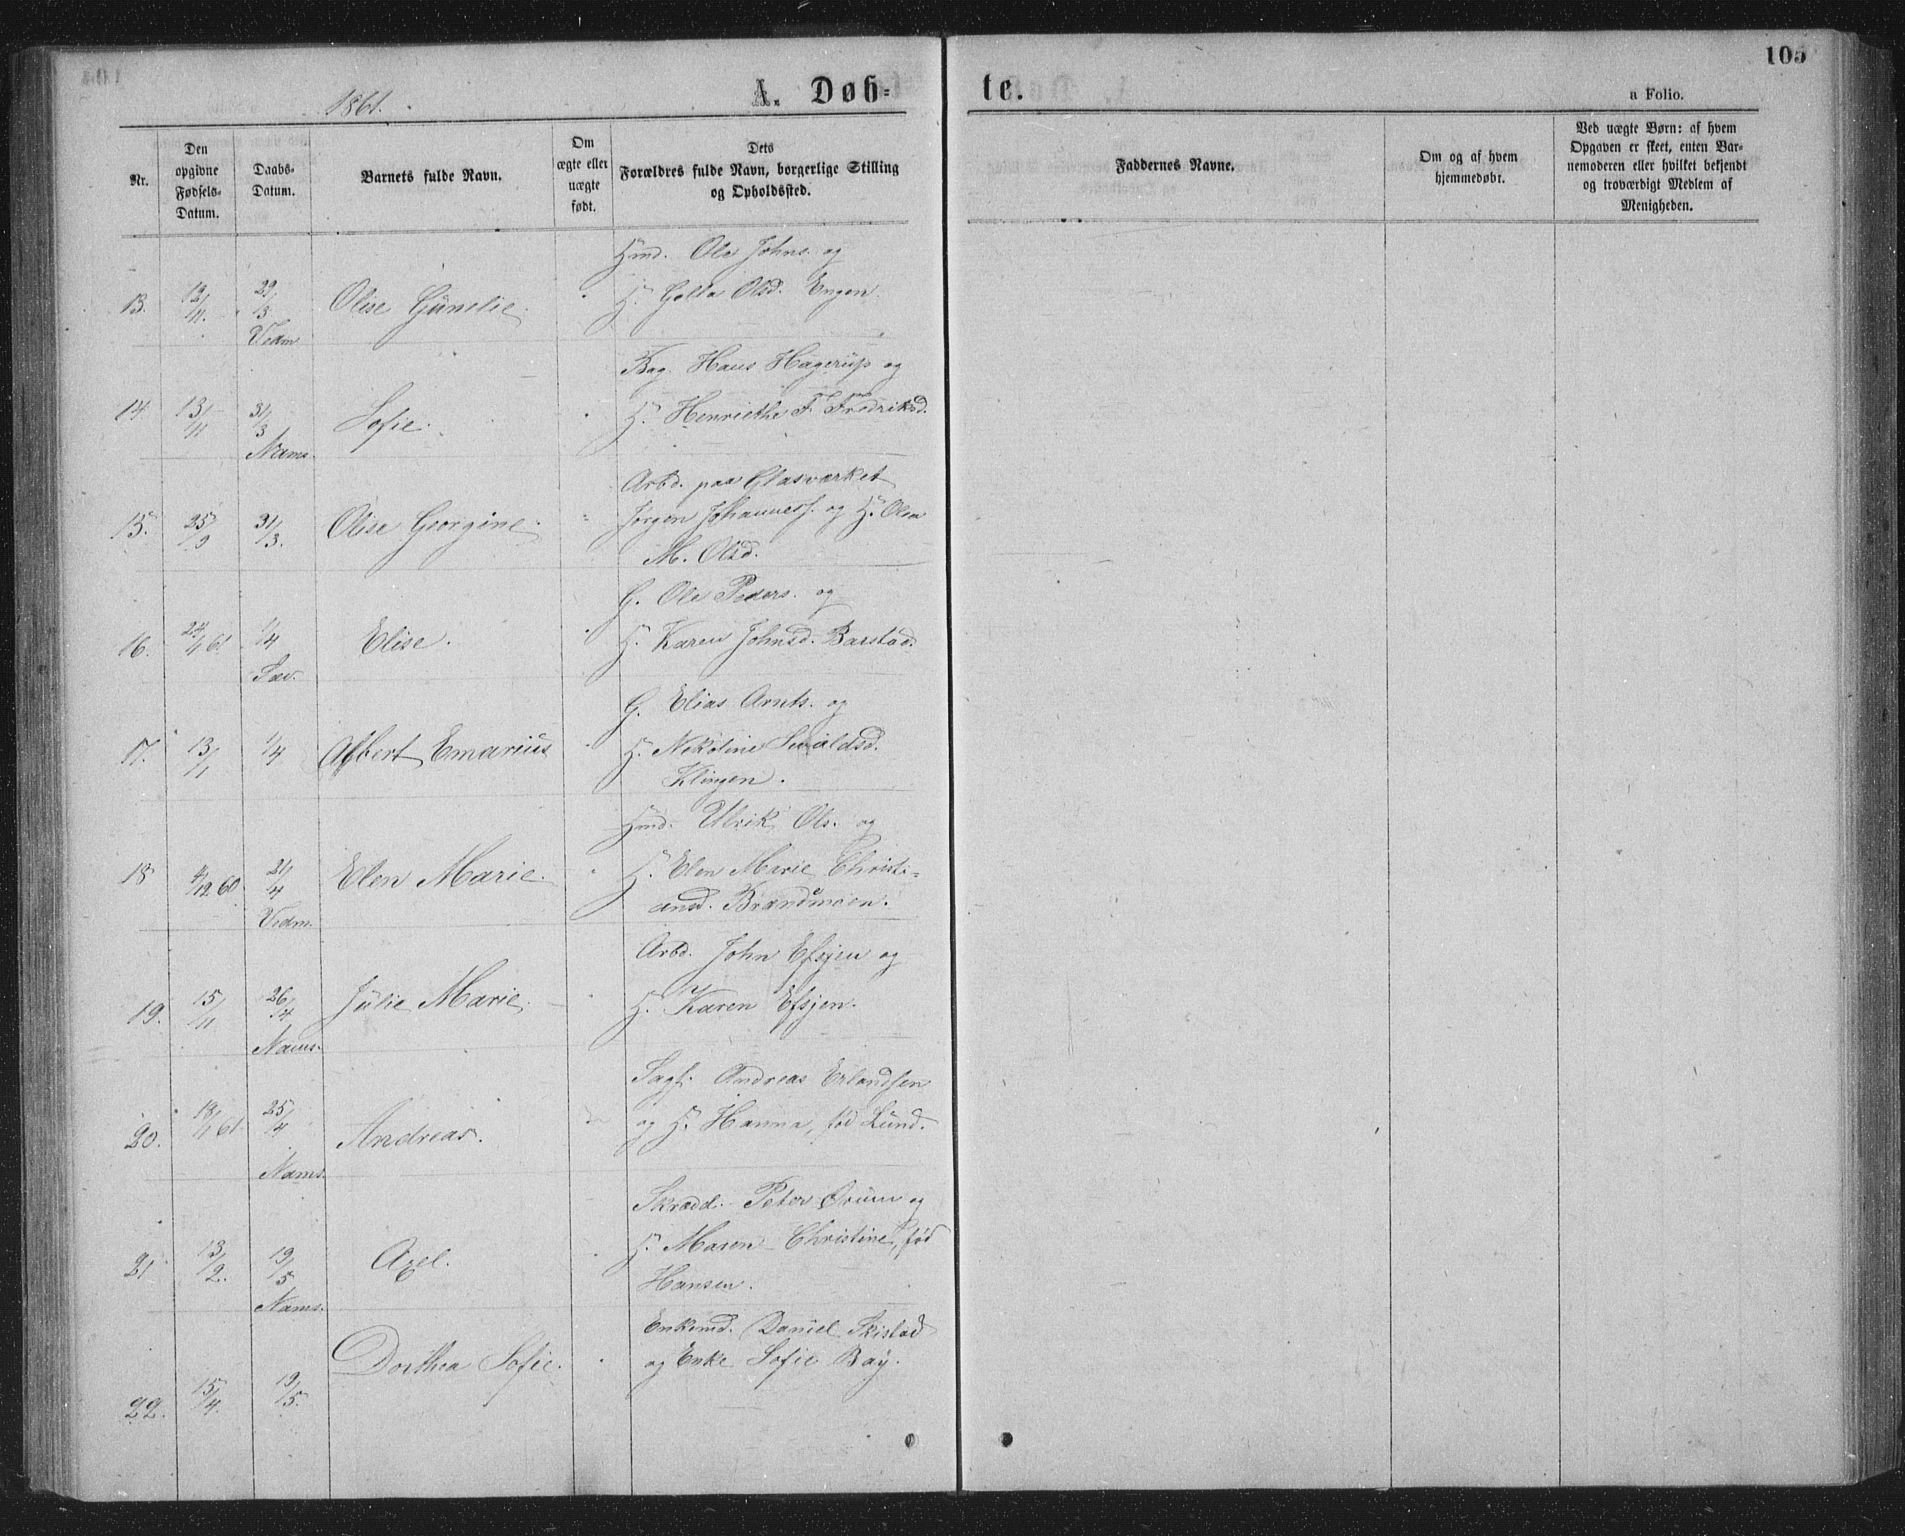 105
1861.
A. Døb=
te.
a Folio.
Nr.
Den
opgivne
Fødsels=
Datum.
Daabs=
Datum.
Barnets fulde Navn.
Om
ægte eller
uægte
født.
Dets
Forældres fulde Navn, borgerlige Stilling
og Opholdssted.
Faddernes Navne.
Om og af hvem
hjemmedøbt.
Ved uægte Børn: af hvem
Opgaven er skeet, enten Bar=
nemoderen eller hvilket bekjendt
og troværdigt Medlem af
Menigheden.
Hmd. Ole Johns. og
13. 12/11. 29/3 Olise Gunelie. H. Golla Olsd. Engen.
Vedm
Bag. Hans Hagerup og
14 13/11 31/3 Sofie. H. Henriethe F. Fredriksd.
Nams.
Arbd. paa Glasværket
15. 25/9 31/3. Olise Georgine. Jørgen Johanness. og H. Olea
M. Olsd.
G. Ole Peders. og
16. 24/1 61 1/4 Elise. H. Karen Johnsd. Barstad.
Sæv.
G. Elias Arnts. og
17. 13/1 1/4 Albert Emarius H. Nikoline Sivaldsd.
Klingen.
Hmd. Ulrik Ols. og
18 4/12 60. 21/4 Elen Marie. H. Elen Marie Christi-
ansd. Brandmoen.
Vedm.
Arbd. John Efsjen og
19. 15/11 26/4 Julie Marie. H. Karen Efsjen.
Nams.
Sagf. Andreas Erlandsen
20. 18/1 61 25/4 Andreas. og H. Hanna, fød Lund.
Nams.
Skrædd. Peter Ørum og
21 13/2. 19/5 Axel. H. Maren Christine, fød
Hansen.
Nams.
Enkemd. Daniel Skistad
Dorthea Sofie. og Enke Sofie Bay.
22. 15/4. 19/5.